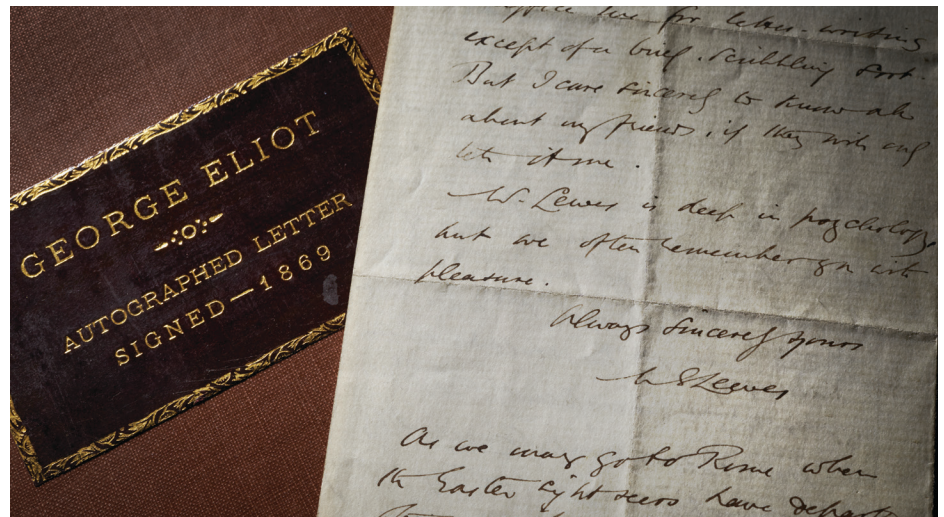 GEORGE ELIOT
AUTOGRAPHED LETTER
SIGNED—1869
for letter-writing
except of a brief, scribbling sort.
But I care sincerely to know
about my friends, if they will only
let it me.
Mr. Lewes is deep in psychology
but we often remember you with
pleasure.
Always sincerely yours
M E Lewes
As we may go to Rome when
the Easter sight seers have